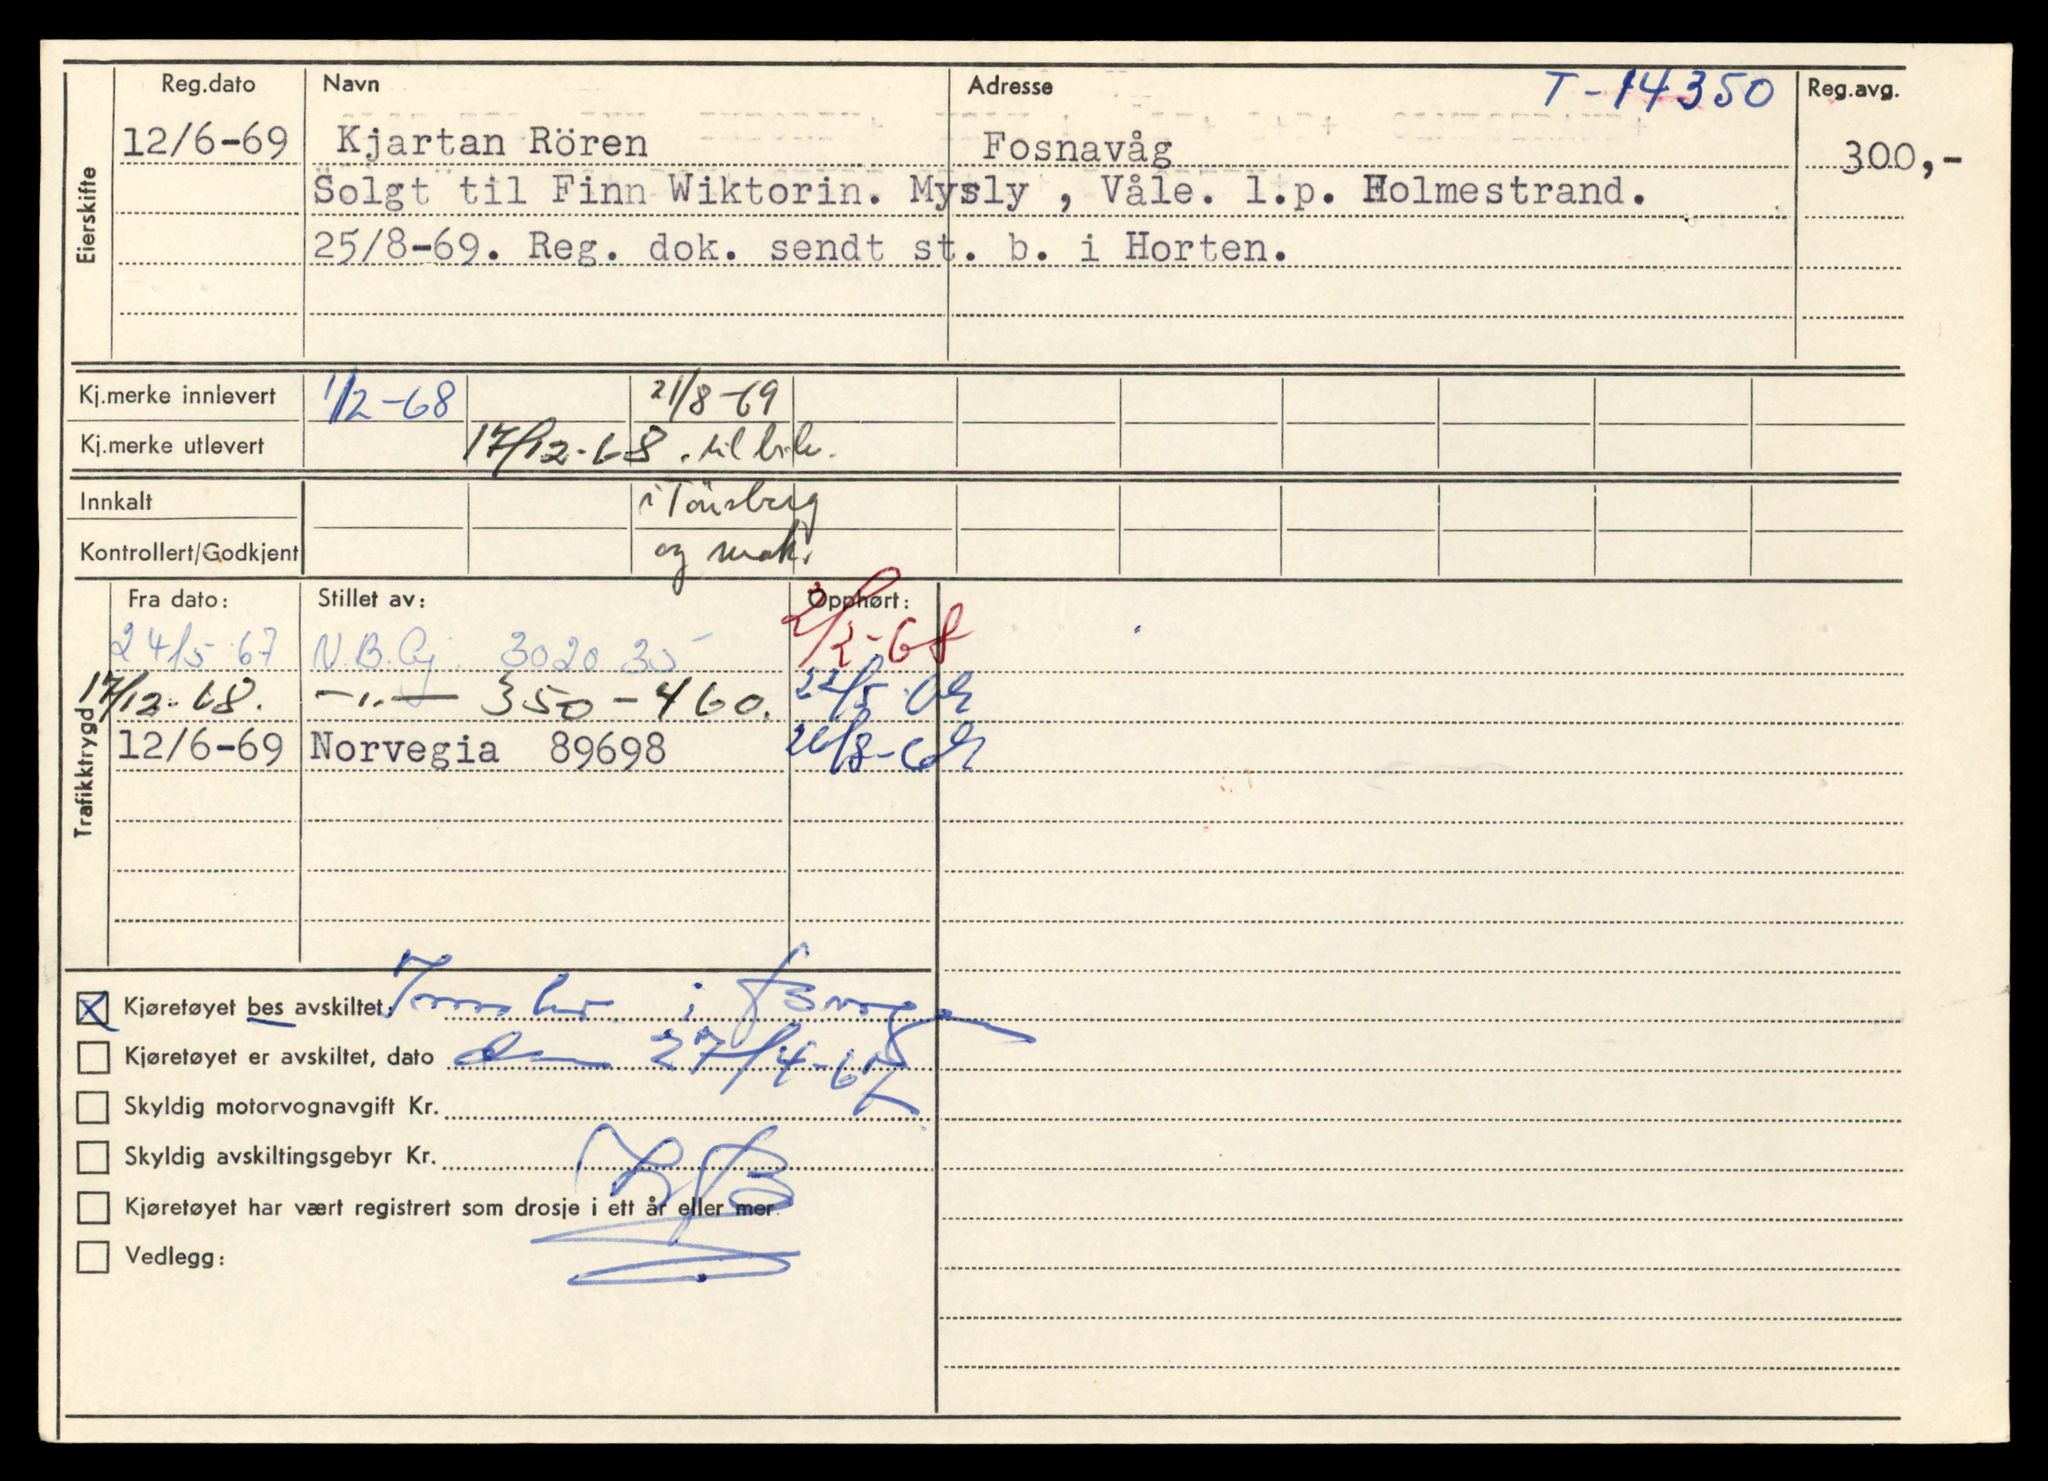 Reg.dato Navn Adresse T-14350 Reg.avg.
Eierskifte
12/6-69 Kjartan Rören Fosnavåg 300,-
Solgt til Finn Wiktorin. Mysly , Våle. l.p. Holmestrand.
25/8-69. Reg. dok. sendt st. b. i Horten.
Kj.merke innlevert 1/2-68 21/8-69
Kj.merke utlevert 17/12-68 . til
Innkalt i Tönsberg
Kontrollert/Godkjent og
Trafikktrygd
Fra dato: Stillet av: Opphørt:
24/5-67 N.B.Gj. 302035 2/2-68
17/12-68. —"— 350-460. 22/5-69
12/6-69 Norvegia 89698 26/8-69
Kjøretøyet bes avskiltet: i
Kjøretøyet er avskiltet, dato den 27/4-67
Skyldig motorvognavgift Kr.
Skyldig avskiltingsgebyr Kr.
Kjøretøyet har vært registrert som drosje i ett år eller mer.
Vedlegg: